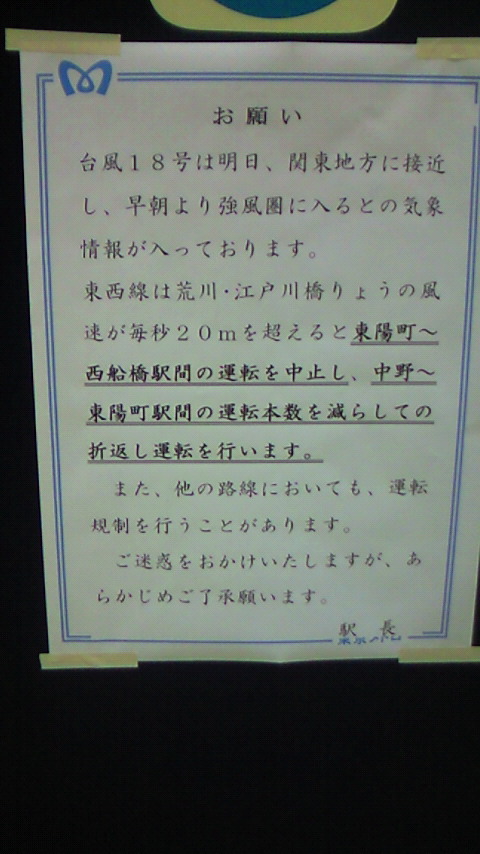 お願い
台風１８号は明日、関東地方に接近
し、早朝より強風圏に入るとの気象
情報が入っております。
東西線は荒川・江戸川橋りょうの風
速が毎秒２０ｍを超えると東陽町～
西船橋駅間の運転を中止し、中野～
東陽町駅間の運転本数を減らしての
折返し運転を行います。
また、他の路線においても、運転
規制を行うことがあります。
ご迷惑をおかけいたしますが、あ
らかじめご了承願います。
駅　長
東京メトロ